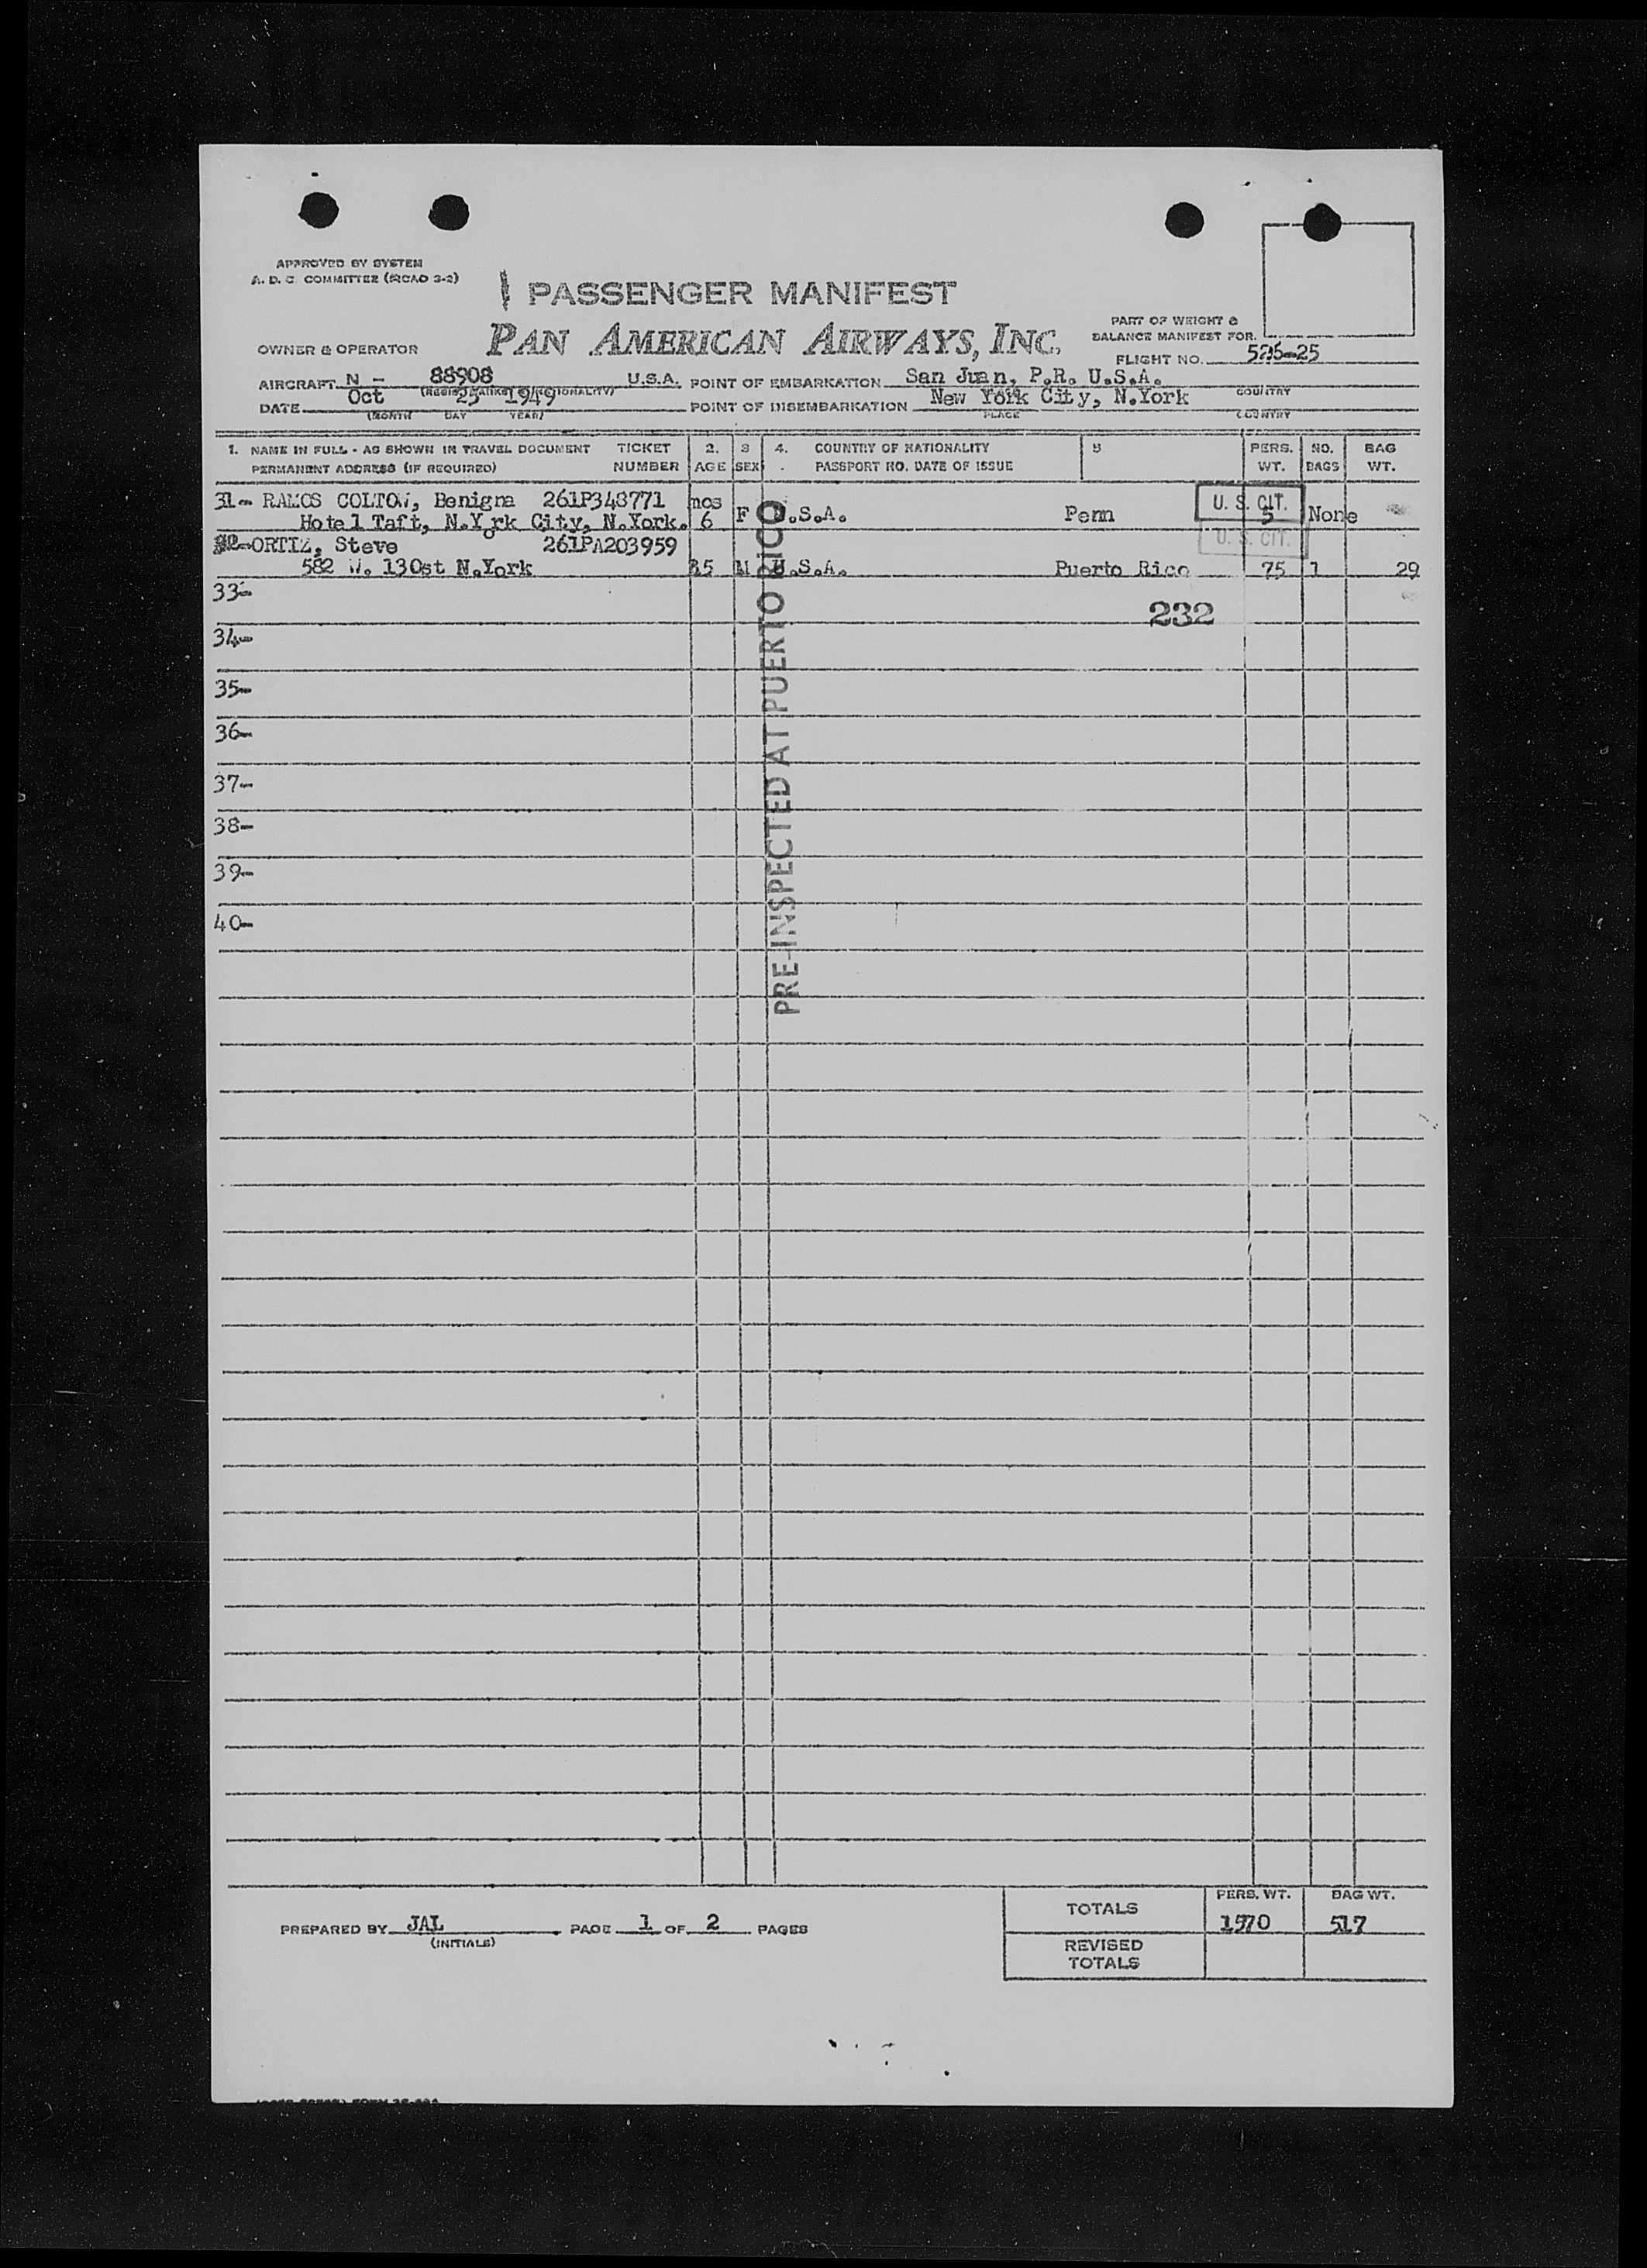 APPROVED BY SYSTEM
A. D. C. COMMITTEE (RCAO 3-2)
PASSENGER MANIFEST
OWNER & OPERATOR PAN AMERICAN AIRWAYS, INC.
PART OF WEIGHT &
BALANCE MANIFEST FOR
FLIGHT NO. 526-25
AIRCRAFT N - 88908 U.S.A. POINT OF EMBARKATION San Juan, P.R. U.S.A.
COUNTRY
DATE Oct 25 1949 POINT OF DISEMBARKATION New York City, N.York
(MONTH DAY YEAR) PLACE COUNTRY
1. NAME IN FULL - AS SHOWN IN TRAVEL DOCUMENT TICKET 2. 3 4. COUNTRY OF NATIONALITY 5 PERS. NO. BAG
PERMANENT ADDRESS (IF REQUIRED) NUMBER AGE SEX PASSPORT NO. DATE OF ISSUE WT. BAGS WT.
31- RAMOS COLTON, Benigna 261P348771 mos U. S. CIT.
Hotel Taft, N.Y rk City, N.York. 6 F U.S.A. Penn 5 None
o
32-ORTIZ, Steve 261PA203959 U. S. CIT.
582 W. 130st N.York 35 M U.S.A. Puerto Rico 75 1 29
33-
232
34-
35-
36-
37-
38-
39-
40-
PRE-INSPECTED AT PUERTO RICO
PERS. WT. BAG WT.
TOTALS 1570 517
PREPARED BY JAL PAGE 1 OF 2 PAGES
(INITIALS)
REVISED
TOTALS